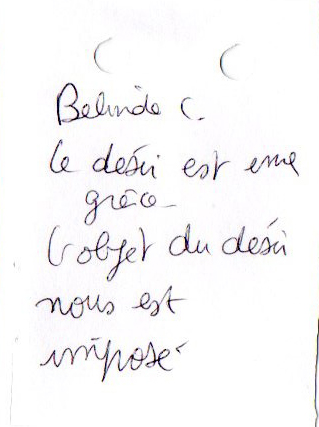 Belinda C.
Le désir est une
grâce_
L'objet du désir
nous est
imposé